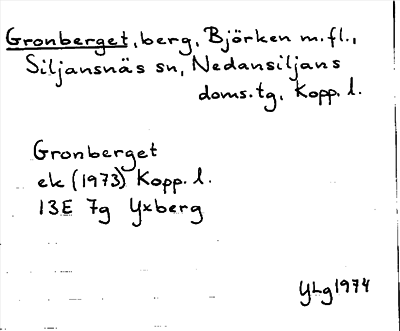 Gronberget, berg, Björken m.fl.,
Siljansnäs sn, Nedansiljans
doms.tg, Kopp. l.
Gronberget
ek (1973) Kopp. l.
13E 7g Yxberg
YLg 1974